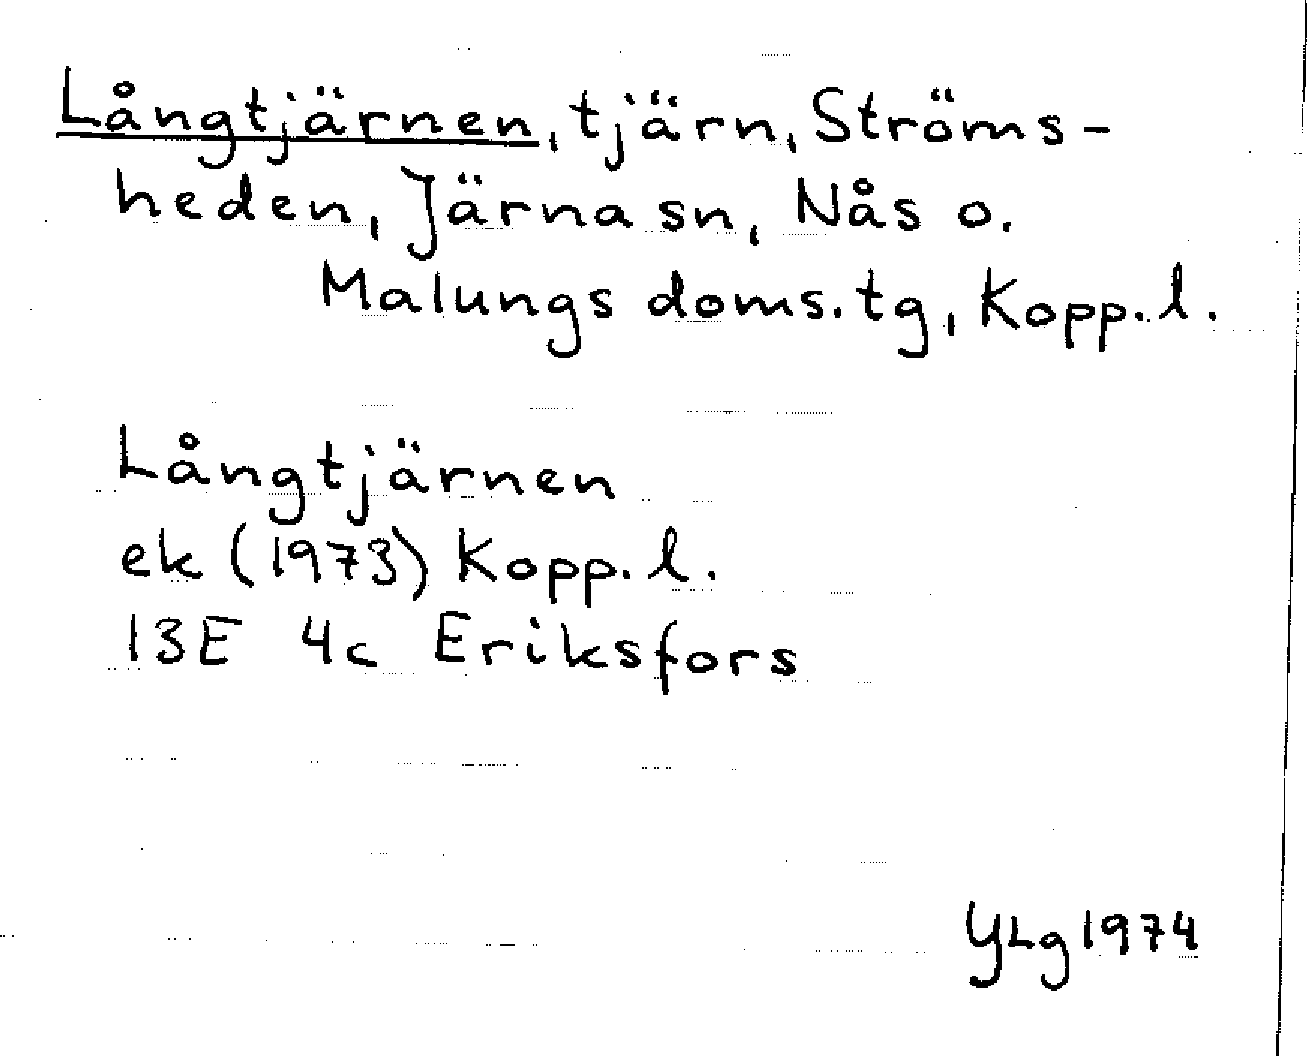 Långtjärnen, tjärn, Ströms-
heden, Järna sn, Nås o.
Malungs doms.tg, Kopp.l.
Långtjärnen
ek (1973) Kopp.l.
13E 4c Eriksfors
YLg 1974